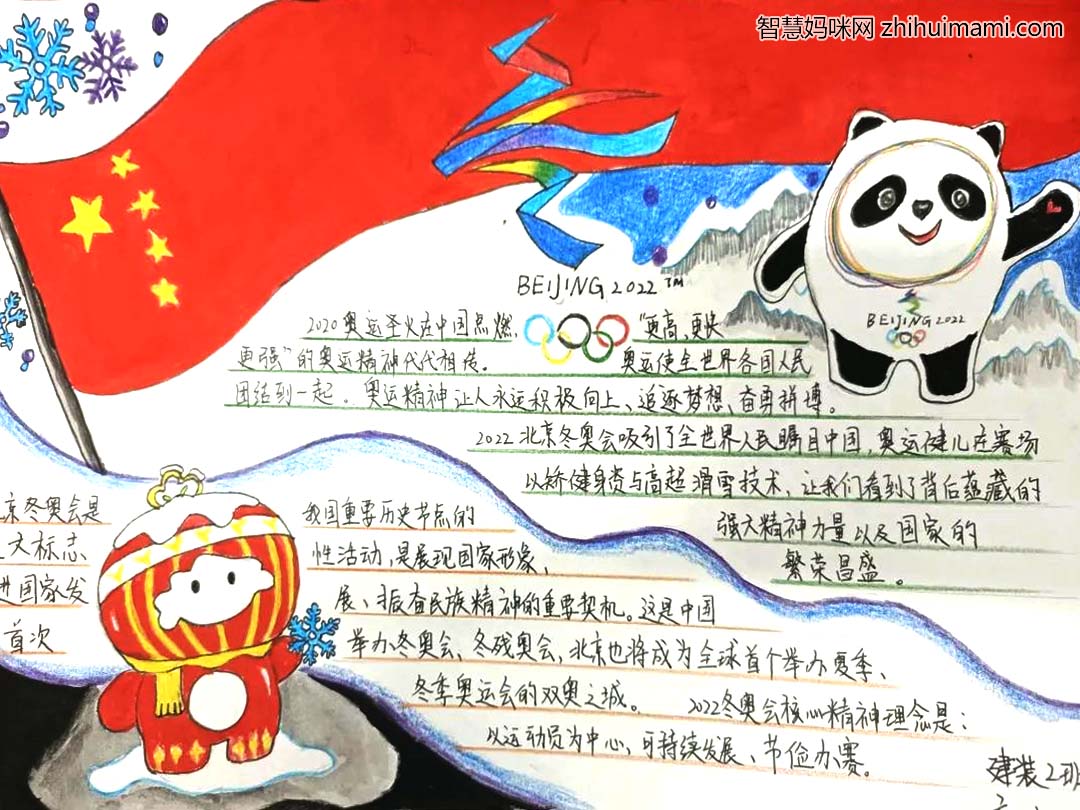 智慧妈咪网 zhihuimami.com
BEIJING 2022 TM
2020奥运圣火在中国点燃,"更高,更快
更强"的奥运精神代代相传。 奥运使全世界各国人民
团结到一起。奥运精神让人永远积极向上、追逐梦想、奋勇拼搏。
BEIJING 2022
2022北京冬奥会吸引了全世界人民瞩目中国,奥运健儿在赛场
以矫健身姿与高超滑雪技术,让我们看到了背后蕴藏的
强大精神力量以及国家的
繁荣昌盛。
京冬奥会是 我国重要历史节点的
文标志 性活动,是展现国家形象、
进国家发 展、振奋民族精神的重要契机。这是中国
首次 举办冬奥会、冬残奥会,北京也将成为全球首个举办夏季、
冬季奥运会的双奥之城。 2022冬奥会核心精神理念是:
以运动员为中心,可持续发展、节俭办赛。
建装2班